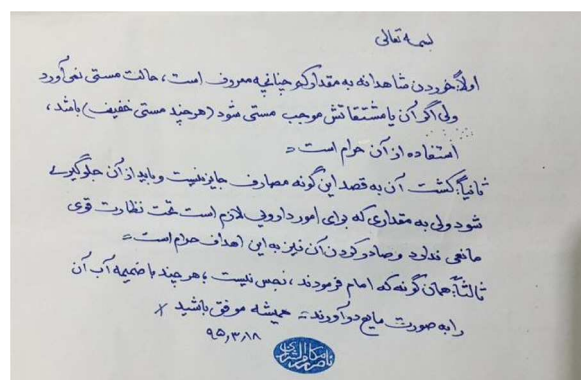 بسمه تعالی
اولاً: خوردن شاهدانه به مقدار کم چنانچه معروف است، حالت مستی نمی‌آورد
ولی اگر آن یا مشتقاتش موجب مستی شود (هر چند مستی خفیف) باشد،
استفاده از آن حرام است.
ثانیاً: کشت آن به قصد این گونه مصارف جایز نیست و باید از آن جلوگیری
شود ولی به مقداری که برای امور دارویی لازم است تحت نظارت قوی
مانعی ندارد و صادر کردن آن نیز به این اهداف حرام است.
ثالثاً: همان گونه که امام فرمودند، نجس نیست؛ هر چند با ضمیمه آب آن
را به صورت مایع درآورند. همیشه موفق باشید
۹۵٫۳٫۱۸
ناصر مکارم الشیرازی